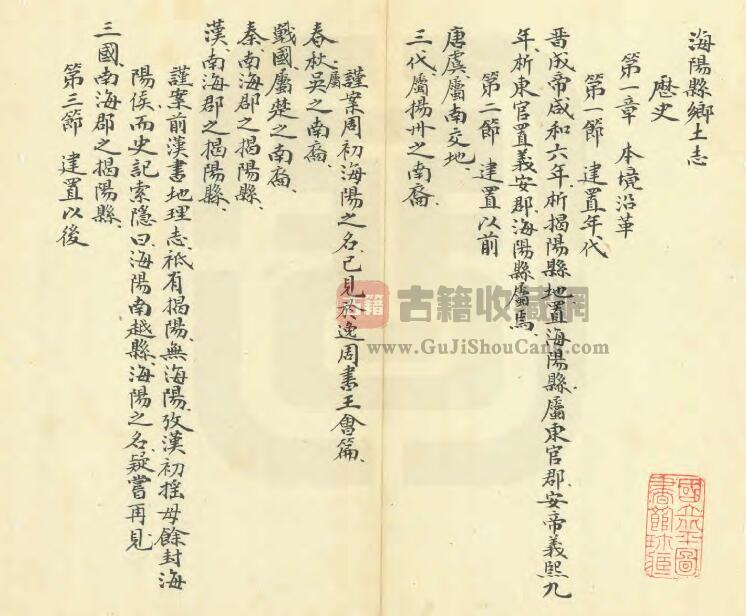 海陽縣鄉土志
歷史
第一章 本境沿革
第一節 建置年代
晋成帝咸和六年、析揭陽縣地置海陽縣、屬東官郡、安帝義熙九
年、析東官置義安郡、海陽縣屬焉、
第二節 建置以前
唐虞屬南交地、
三代屬揚卅之南裔、
謹案周初海陽之名、已見於逸周書王會篇、
春秋屬吳之南裔、
戰國屬楚之南裔、
秦、南海郡之揭陽縣、
漢、南海郡之揭陽縣、
謹案前漢書地理志、祇有揭陽、無海陽、攷漢初搖毋餘封海
陽侯、而史記索隱曰、海陽南越縣、海陽之名、疑嘗再見
三國、南海郡之揭陽縣、
第三節 建置以後
古籍 古籍收藏網
www.GuJiShouCang.com
國立北平圖
書館珍藏